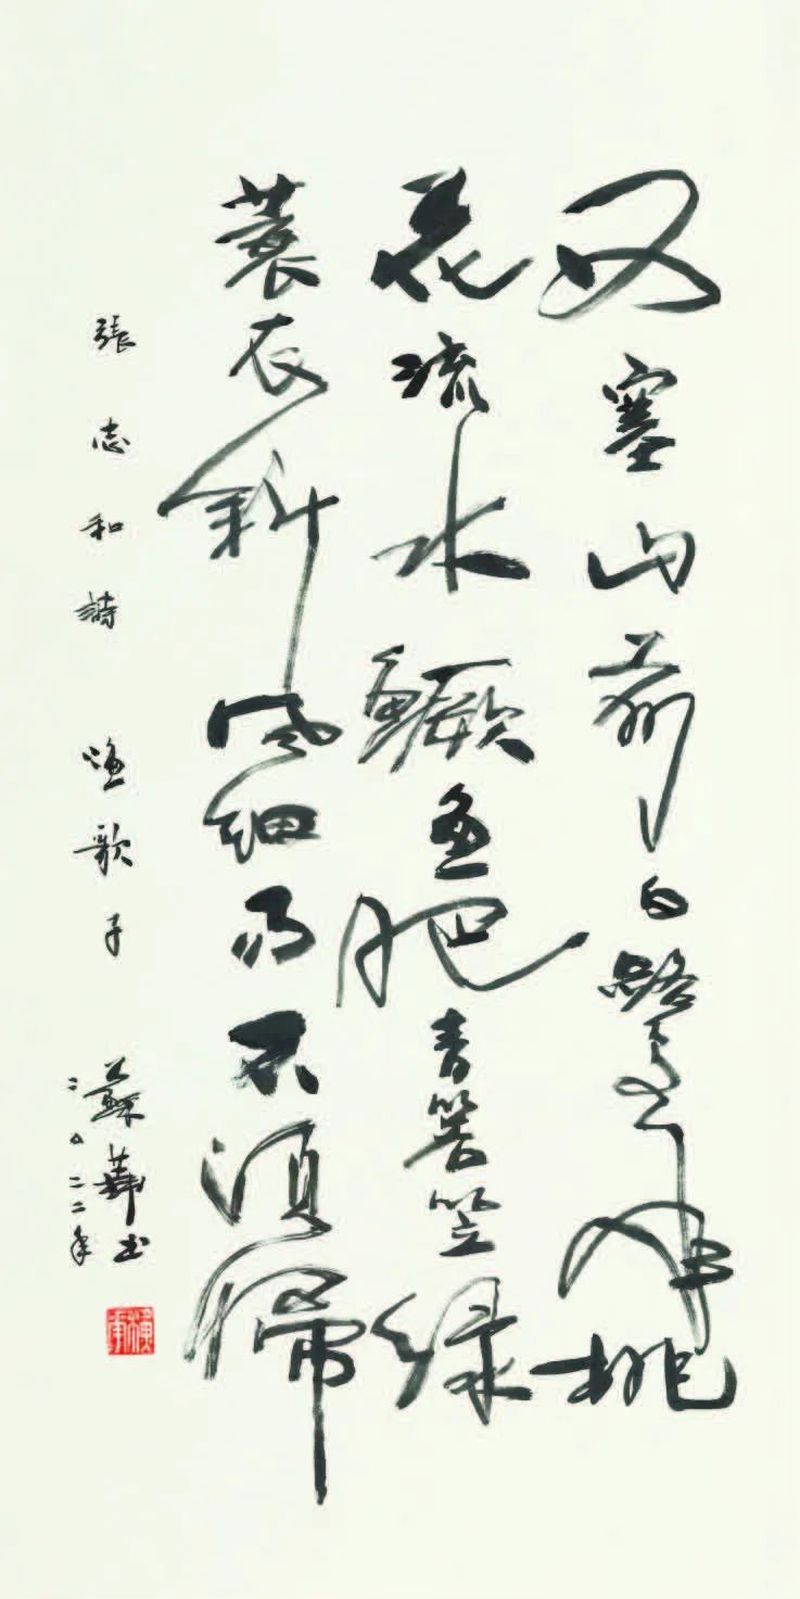 西塞山前白鷺飛桃
花流水鱖魚肥青箬笠綠
蓑衣斜風細雨不須歸
張志和詩 漁歌子 蘇華書
二〇二二年